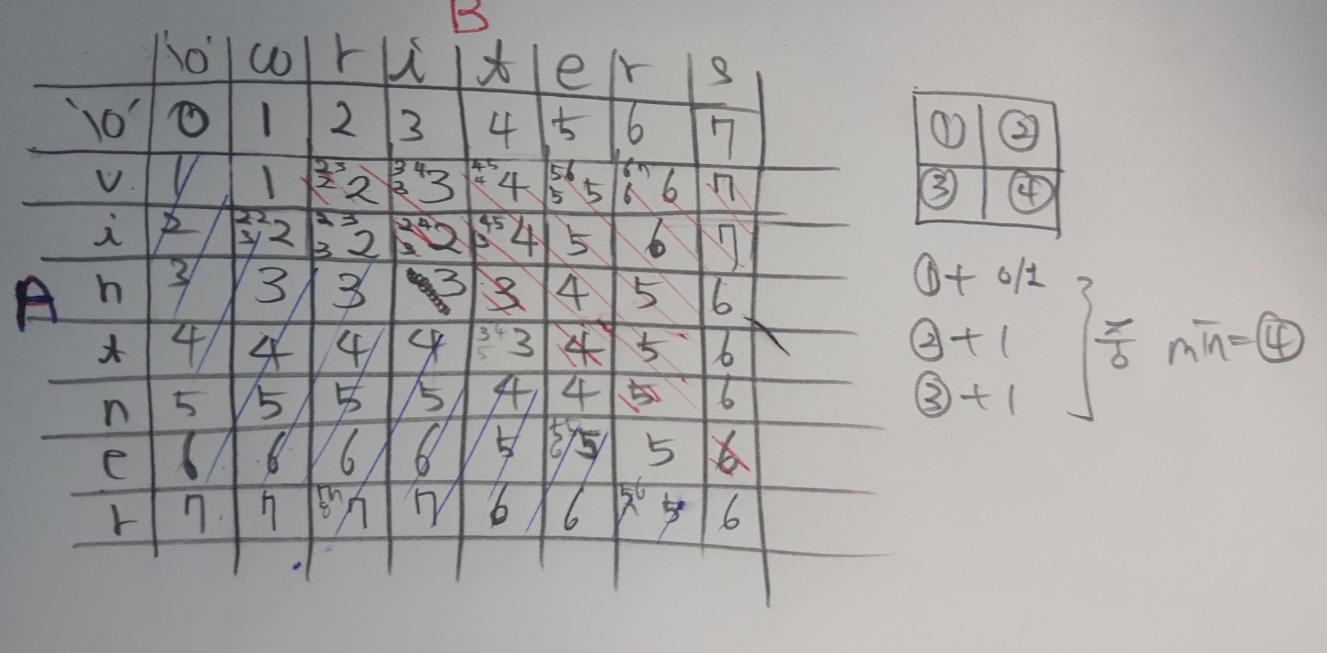 B
'\0' w r i t e r s
'\0' 0 1 2 3 4 5 6 7
v 1 1 2 3 2 2 3 4 3 3 4 5 4 4 5 6 5 5 6 7 6 6 7
i 2 2 2 3 2 2 3 3 2 2 4 3 2 4 5 3 4 5 6 7
A n 3 3 3 3 3 4 5 6
t 4 4 4 4 3 4 5 3 4 5 6
n 5 5 5 5 4 4 5 6
e 6 6 6 6 5 5 5 6
r 7 7 7 7 6 6 5 6 5 6
① ②
③ ④
①+ 0/1
②+1
③+1
중 min=④